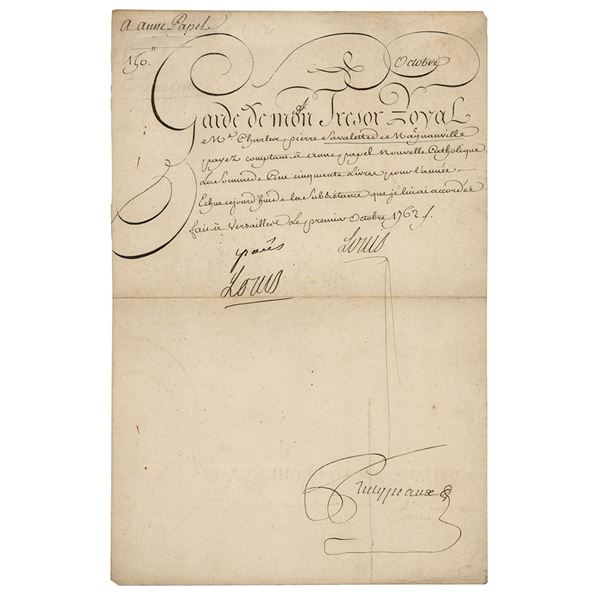 a anne Papel
150.tt
Octobre
Garde de mon Tresor Royal
Me Charles pierre Savalette de Magnanville
payez comptant à anne papel Nouvelle Catholique
La Somme de Cent cinquante Livres pour l'année
Echue cejourd'huy de la Subsistance que je luy ai accordée
fait à Versailles Le premier Octobre 1762 ⨍.
Louis
Louis
Phelypeaux